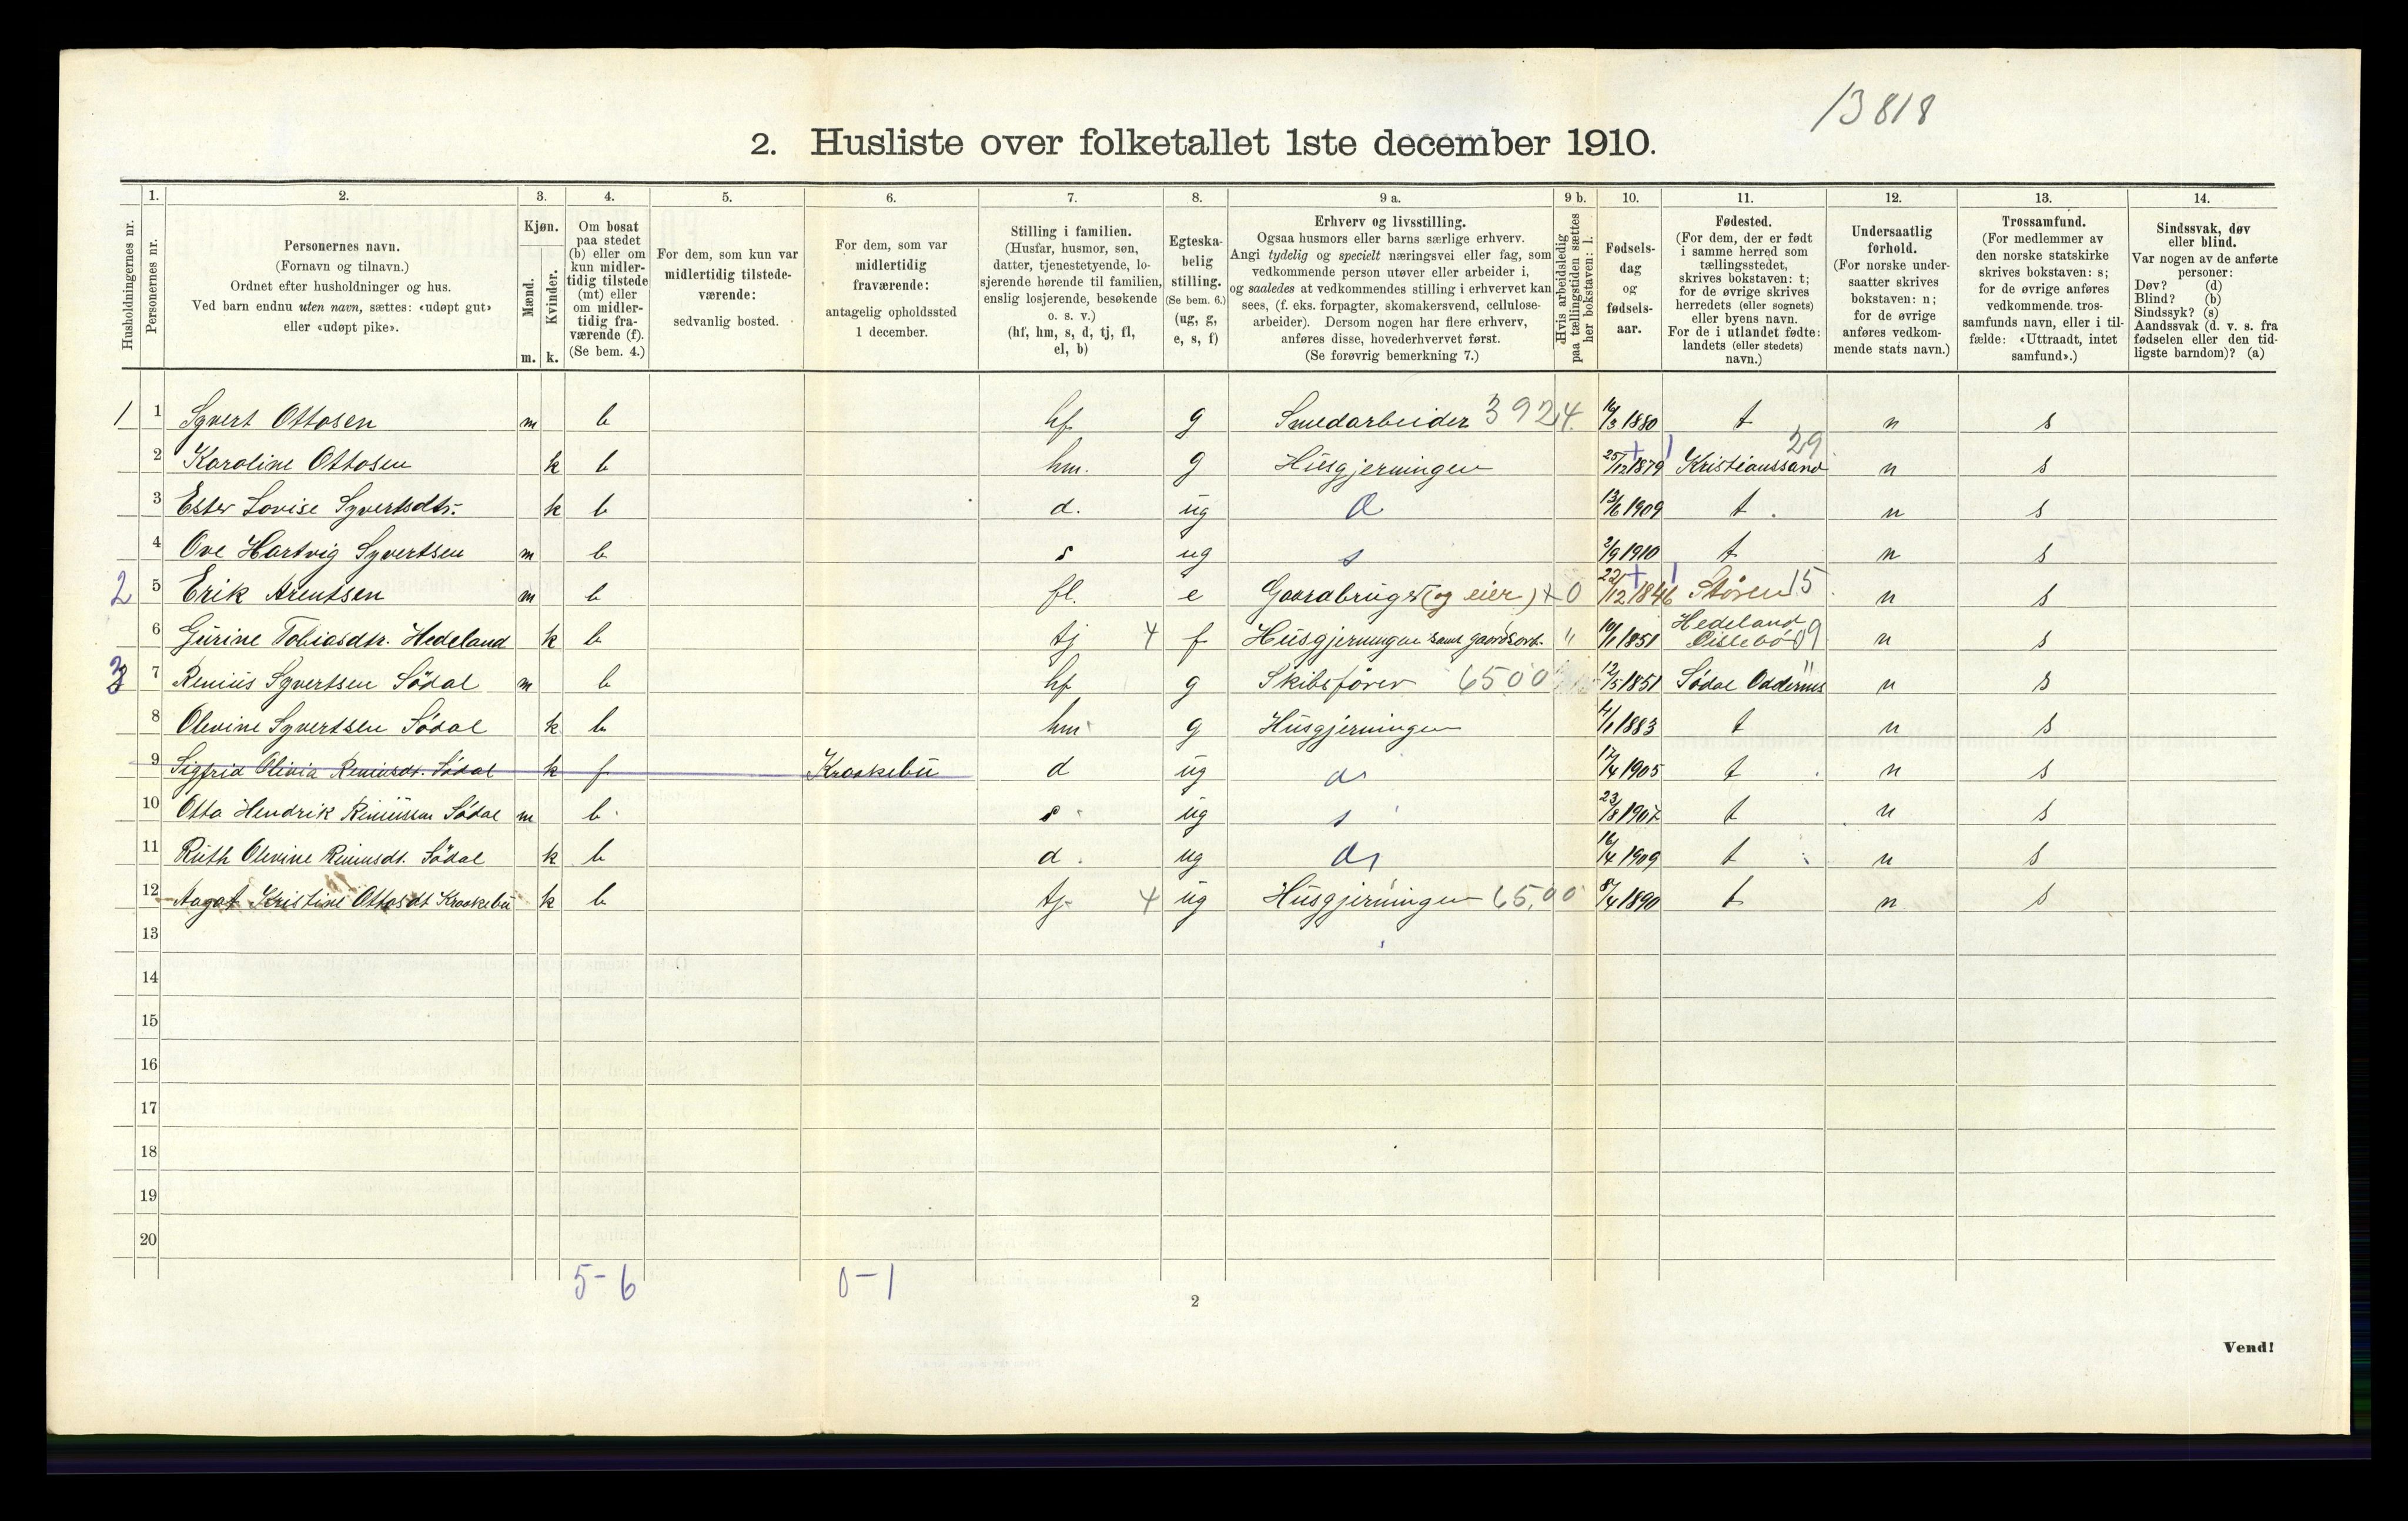 13818
2. Husliste over folketallet 1ste december 1910.
1. 2. 3. 4. 5. 6. 7. 8. 9 a. 9 b. 10. 11. 12. 13. 14.
Husholdningernes nr.
Personernes nr.
Personernes navn.
(Fornavn og tilnavn.)
Ordnet efter husholdninger og hus.
Ved barn endnu uten navn, sættes: «udøpt gut»
eller «udøpt pike».
Kjøn.
Mænd.
Kvinder.
m. k.
Om bosat
paa stedet
(b) eller om
kun midler-
tidig tilstede
(mt) eller
om midler-
tidig fra-
værende (f).
(Se bem. 4.)
For dem, som kun var
midlertidig tilstede-
værende:
sedvanlig bosted.
For dem, som var
midlertidig
fraværende:
antagelig opholdssted
1 december.
Stilling i familien.
(Husfar, husmor, søn,
datter, tjenestetyende, lo-
sjerende hørende til familien,
enslig losjerende, besøkende
o. s. v.)
(hf, hm, s, d, tj, fl,
el, b)
Egteska-
belig
stilling.
(Se bem. 6.)
(ug, g,
e, s, f)
Erhverv og livsstilling.
Ogsaa husmors eller barns særlige erhverv.
Angi tydelig og specielt næringsvei eller fag, som
vedkommende person utøver eller arbeider i,
og saaledes at vedkommendes stilling i erhvervet kan
sees, (f. eks. forpagter, skomakersvend, cellulose-
arbeider). Dersom nogen har flere erhverv,
anføres disse, hovederhvervet først.
(Se forøvrig bemerkning 7.)
Hvis arbeidsledig
paa tællingstiden sættes
her bokstaven: l.
Fødsels-
dag
og
fødsels-
aar.
Fødested.
(For dem, der er født
i samme herred som
tællingsstedet,
skrives bokstaven: t;
for de øvrige skrives
herredets (eller sognets)
eller byens navn.
For de i utlandet fødte:
landets (eller stedets)
navn.)
Undersaatlig
forhold.
(For norske under-
saatter skrives
bokstaven: n;
for de øvrige
anføres vedkom-
mende stats navn.)
Trossamfund.
(For medlemmer av
den norske statskirke
skrives bokstaven: s;
for de øvrige anføres
vedkommende tros-
samfunds navn, eller i til-
fælde: «Uttraadt, intet
samfund».)
Sindssvak, døv
eller blind.
Var nogen av de anførte
personer:
Døv? (d)
Blind? (b)
Sindssyk? (s)
Aandssvak (d. v. s. fra
fødselen eller den tid-
ligste barndom)? (a)
1 1 Syvert Ottosen m b hf g Smedarbeider 3924 16/3 1880 t n s
2 Karoline Ottosen k b hm. g Husgjerningen 25/12 1879 Kristianssand 29 n s
3 Ester Lovise Syvertsdtr. k b d. ug d 13/6 1909 t. n s
4 Ove Hartvig Syvertsen m b s ug s 2/9 1910 t n s
2 5 Erik Arentsen m b fl. e Gaardbruger (og eier) + 0 22/12 1846 Støren 15 n s
6 Gurine Tobiasdtr. Hedeland k b tj 4 f Husgjerningen samt gaardsarb. " 10/1 1851 Hedeland 09 n s
3 7 Renius Syvertsen Södal m b hf g Skibsförer 6500 12/5 1851 Södal Oddernes " n s
8 Olevine Syvertsen Södal k b hm g Husgjerningen 4/1 1883 t n s
9 Sigfrid Olivia Reniusdt. Södal k f Kraakebu d ug d 17/4 1905 t n s
10 Otto Hendrik Reniussen Södal m b s ug s 23/8 1907 t n s
11 Ruth Olevine Reniusdt. Södal k b d. ug d 16/4 1909 t n s
12 Aagot Kristine Ottosdt Kraakebu k b tj 4 ug Husgjerningen 65,00 8/4 1890 t n s
13
14
15
16
17
18
19
20
5-6 0-1
2
Vend!